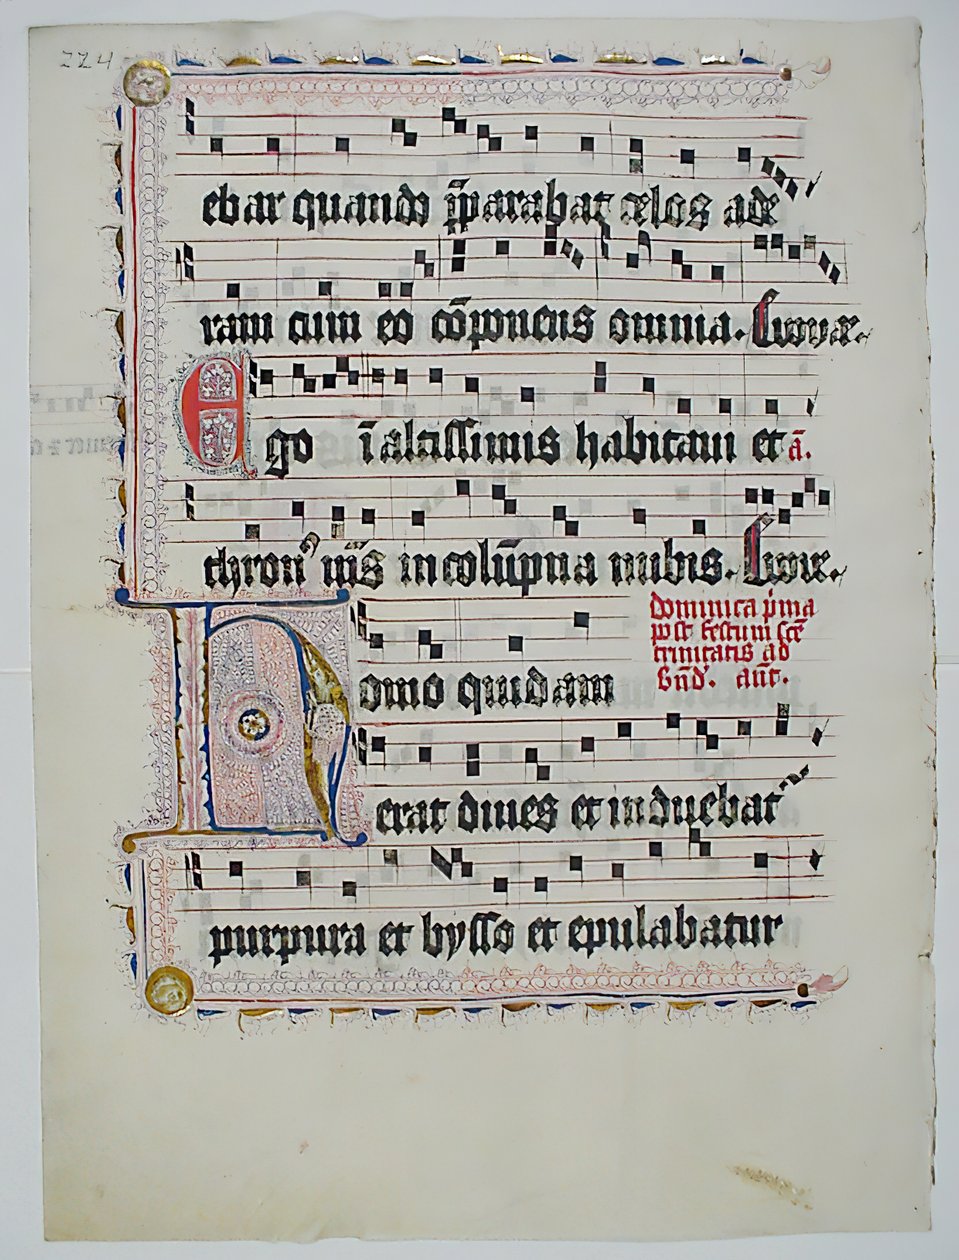 224
ebar quando p̄parabat celos ade
ram cum eo cōponens omnia.
Ego ī altissimis habitaui et
thron' m̄s in colūpna nubis.
dominica p̄ma
post festum scē
trinitatis ad
bn̄d'. ant̄.
Homo quidam
erat diues et induebat
purpura et bysso et epulabatur